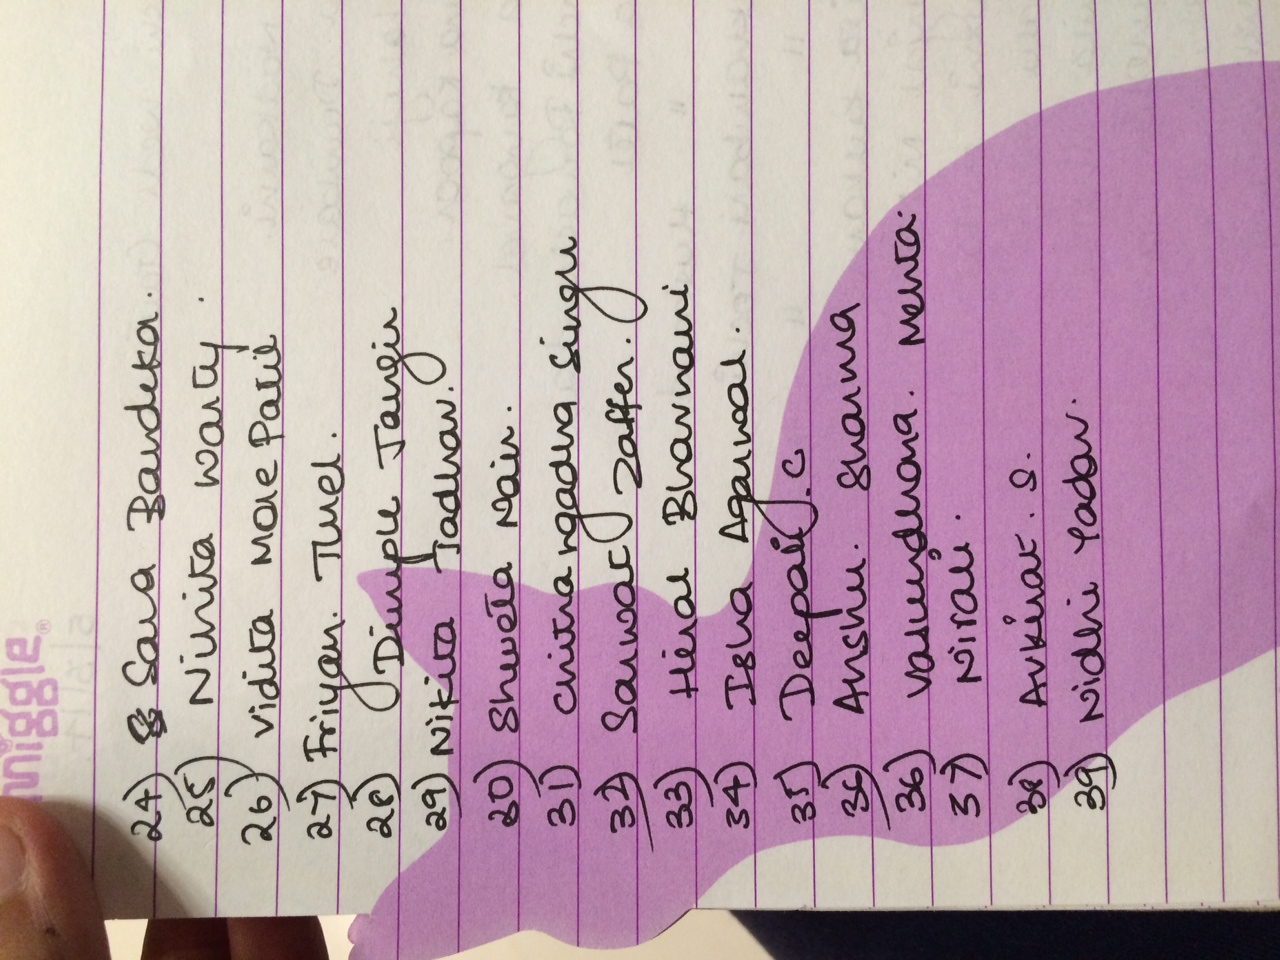 miggle®
24) Sara Bandeka.
25) Ninita Warty.
26) Vidita More Patil
27) Friyan. Tluel.
28) Dimple Jangir
29) Nikita Jadhav.
30) Shweta Nair.
31) Chitrangadha Singh
32) Sarwat Zaffer.
33) Hiral Bhavnani
34) Isha Agarwal.
35) Deepali. C
36) Anshu. Sharma
36) Vasundhara. Mehta.
37) Nirali.
38) Avkirat. S.
39) Nidhi Yadav.